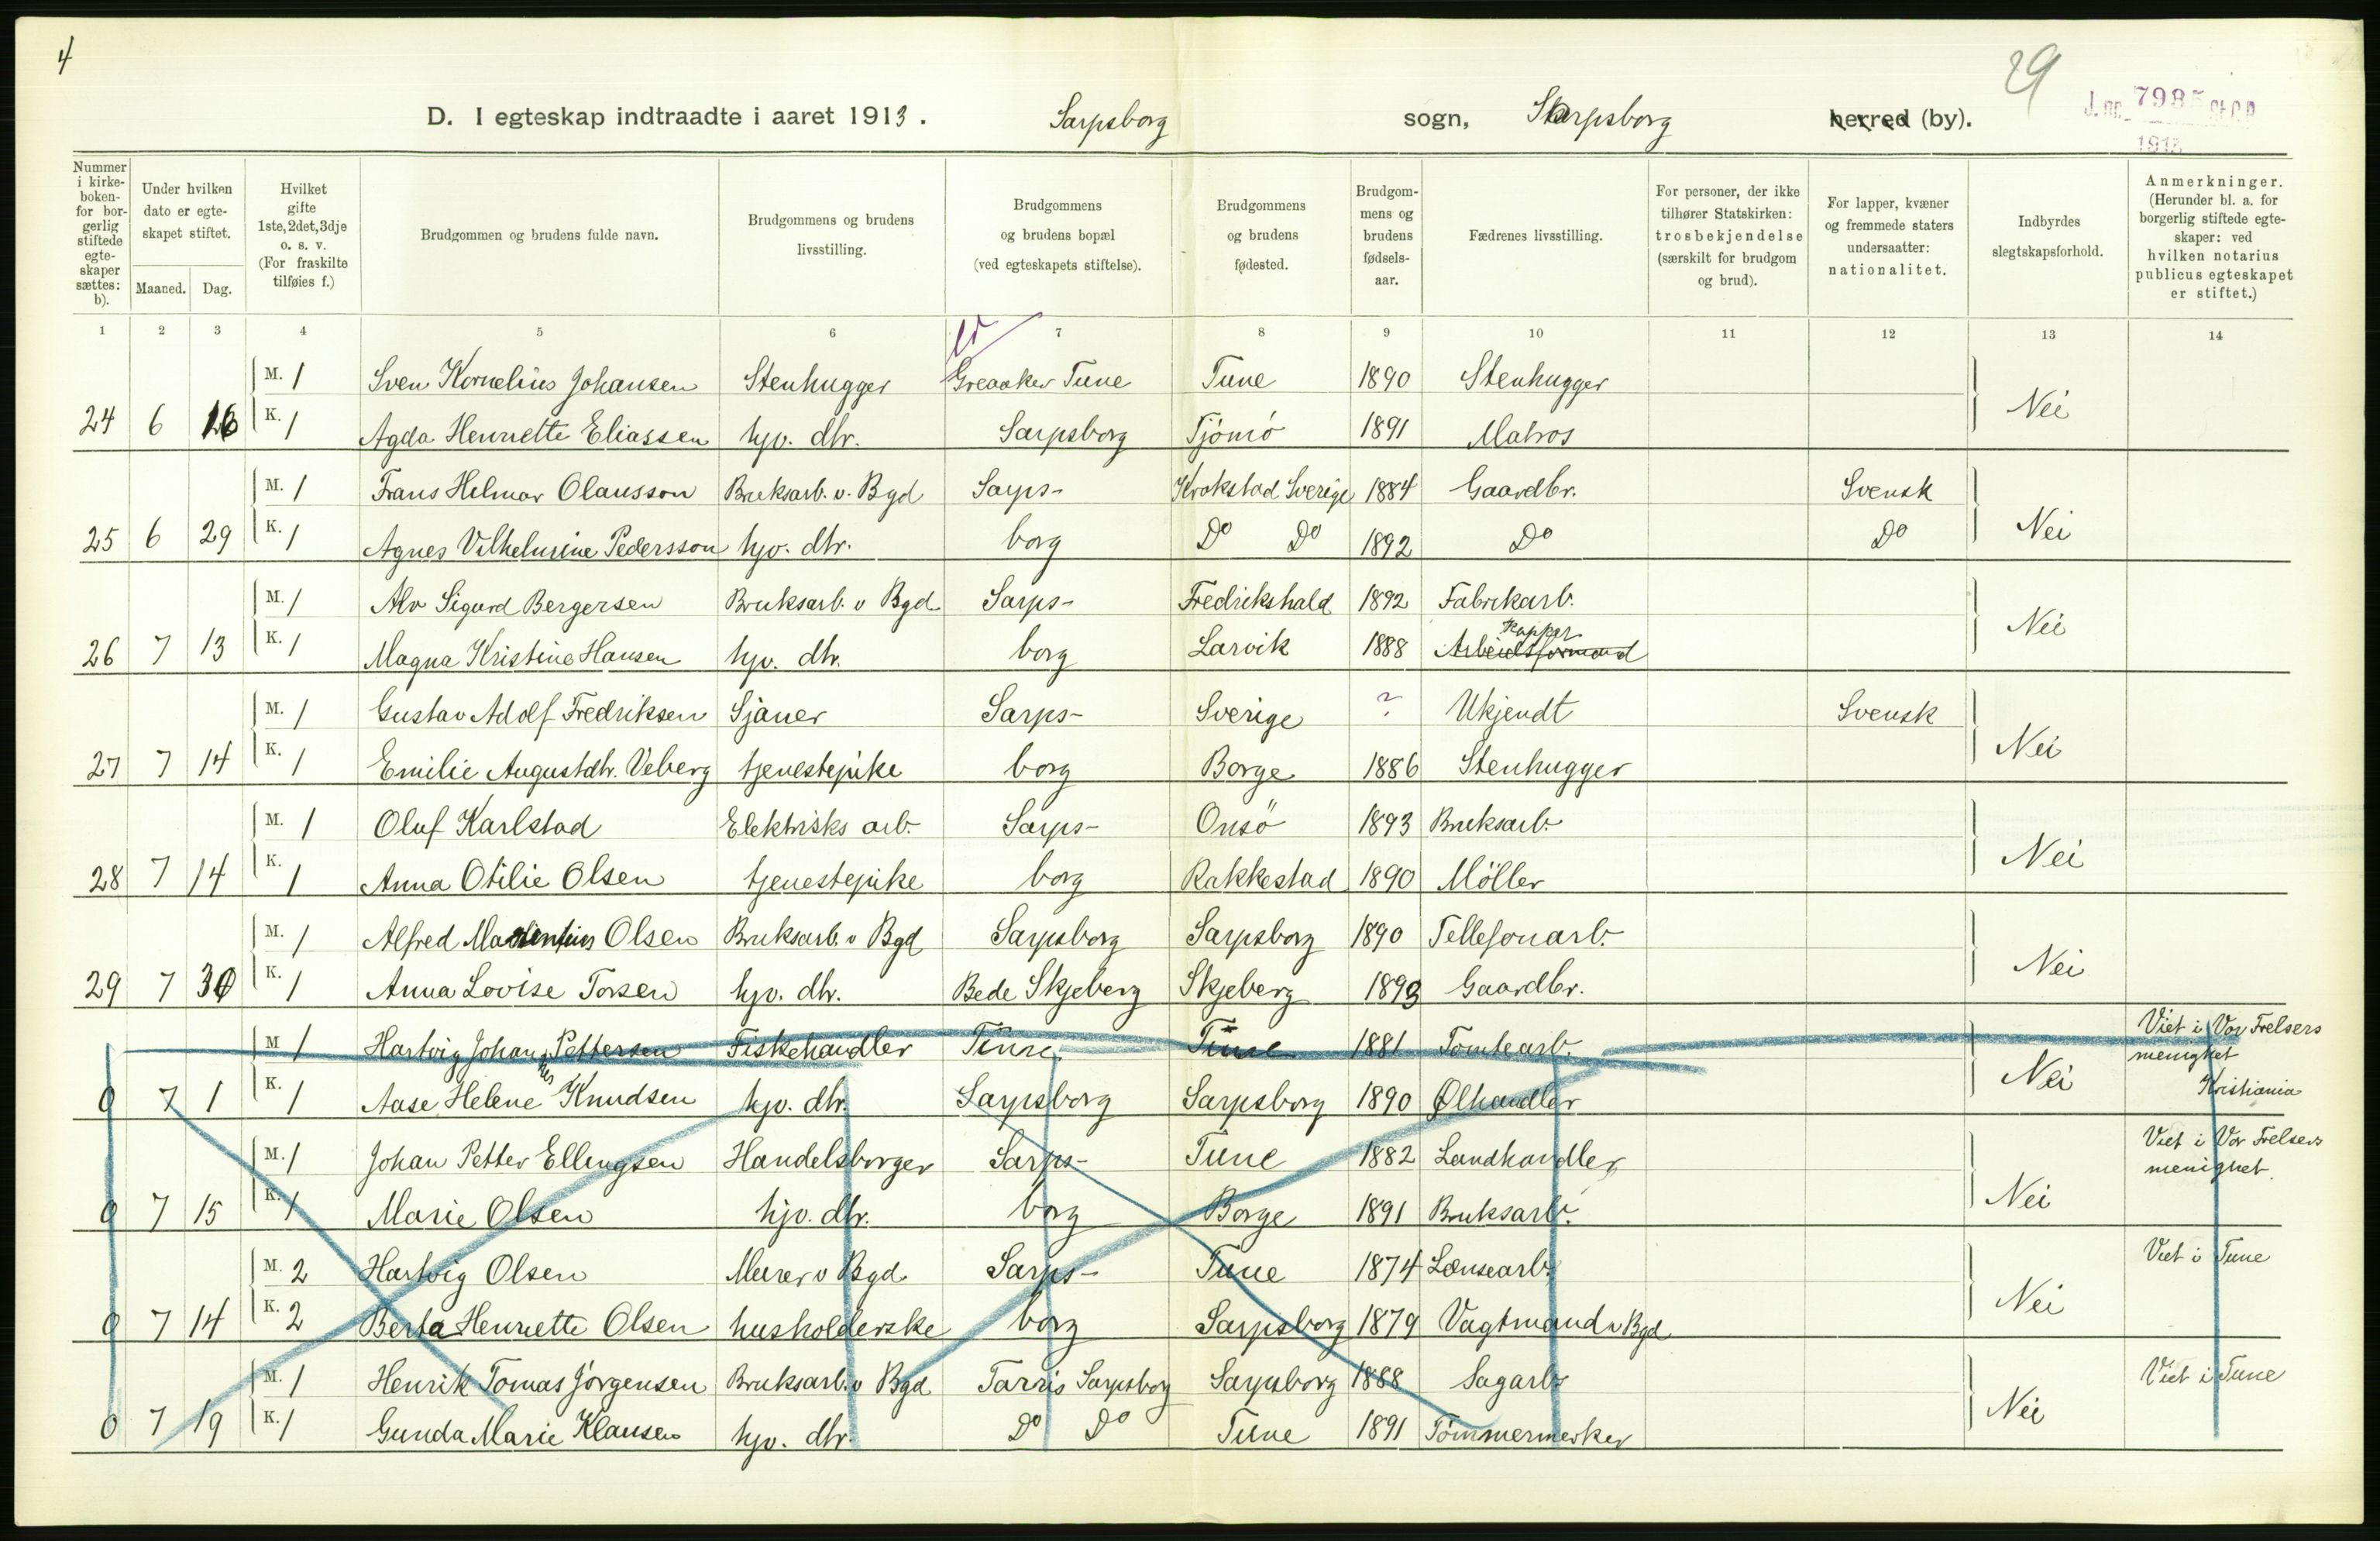 4
29
D. I egteskap indtraadte i aaret 1913. Sarpsborg sogn, Sarpsborg herred (by).
J. nr. 7985 St.C.B
1913
Nummer i kirke-boken- for bor-gerlig stiftede egte-skaper sættes: b).
Under hvilken dato er egte-skapet stiftet.
Maaned. Dag.
Hvilket gifte 1ste, 2det, 3dje o. s. v. (For fraskilte tilføies f.)
Brudgommen og brudens fulde navn.
Brudgommens og brudens livsstilling.
Brudgommens og brudens bopæl (ved egteskapets stiftelse).
Brudgommens og brudens fødested.
Brudgom-mens og brudens fødsels-aar.
Fædrenes livsstilling.
For personer, der ikke tilhører Statskirken: trosbekjendelse (særskilt for brudgom og brud).
For lapper, kvæner og fremmede staters undersaatter: nationalitet.
Indbyrdes slegtskapsforhold.
Anmerkninger. (Herunder bl. a. for borgerlig stiftede egte-skaper: ved hvilken notarius publicus egteskapet er stiftet.)
1 2 3 4 5 6 7 8 9 10 11 12 13 14
M. 1 Sven Kornelius Johansen Stenhugger Greaaker Tune Tune 1890 Stenhugger
24 6 16 K. 1 Agda Henriette Eliassen hjv. dtr. Sarpsborg Tjömö 1891 Matros Nei
M. 1 Frans Helmar Olausson Bruksarb. v. Bgd Sarps- Krokstad Sverige 1884 Gaardbr. Svensk
25 6 29 K. 1 Agnes Vilhelmine Pedersson hjv. dtr. borg Do Do 1892 Do Do Nei
M. 1 Alv Sigurd Bergersen Bruksarb. v Bgd Sarps- Fredrikshald 1892 Fabrikarb.
Kapper
26 7 13 K. 1 Magna Kristine Hansen hjv. dtr. borg Larvik 1888 Arbeidsformand Nei
M. 1 Gustav Adolf Fredriksen Sjauer Sarps- Sverige ? Ukjendt Svensk
27 7 14 K. 1 Emilie Augustdtr. Veberg tjenestepike borg Borge 1886 Stenhugger Nei
M. 1 Oluf Karlstad Elektrisks arb. Sarps- Onsö 1893 Bruksarb.
28 7 14 K. 1 Anna Otilie Olsen tjenestepike borg Rakkestad 1890 Möller Nei
M. 1 Alfred Olsen Bruksarb. v Bgd Sarpsborg Sarpsborg 1890 Tellefonarb.
29 7 30 K. 1 Anna Lovise Torsen hjv. dtr. Bede Skjeberg Skjeberg 1893 Gaardbr. Nei
M 1 Hartvig Johannes Pettersen Fiskehandler Tune Tune 1881 Tomtearb. Viet i Vor Frelsers menighet
0 7 1 K. 1 Aase Helene Knudsen hjv. dtr. Sarpsborg Sarpsborg 1890 Ølhandler Nei Kristiania
M. 1 Johan Petter Ellingsen Handelsborger Sarps- Tune 1882 Landhandler Viet i Vor Frelsers menighet.
0 7 15 K. 1 Marie Olsen hjv. dtr. borg Borge 1891 Bruksarb. Nei
M. 2 Hartvig Olsen Murer v Bgd Sarps- Tune 1874 Lænsearb. Viet i Tune
0 7 14 K. 2 Berta Henriette Olsen husholderske borg Sarpsborg 1879 Vagtmand v Bgd Nei
M. 1 Henrik Tomas Jörgensen Bruksarb. v Bgd Tarris Sarpsborg Sarpsborg 1888 Sagarb. Viet i Tune
0 7 19 K. 1 Gunda Marie Klausen hjv. dtr. Do Do Tune 1891 Tömmermerker Nei